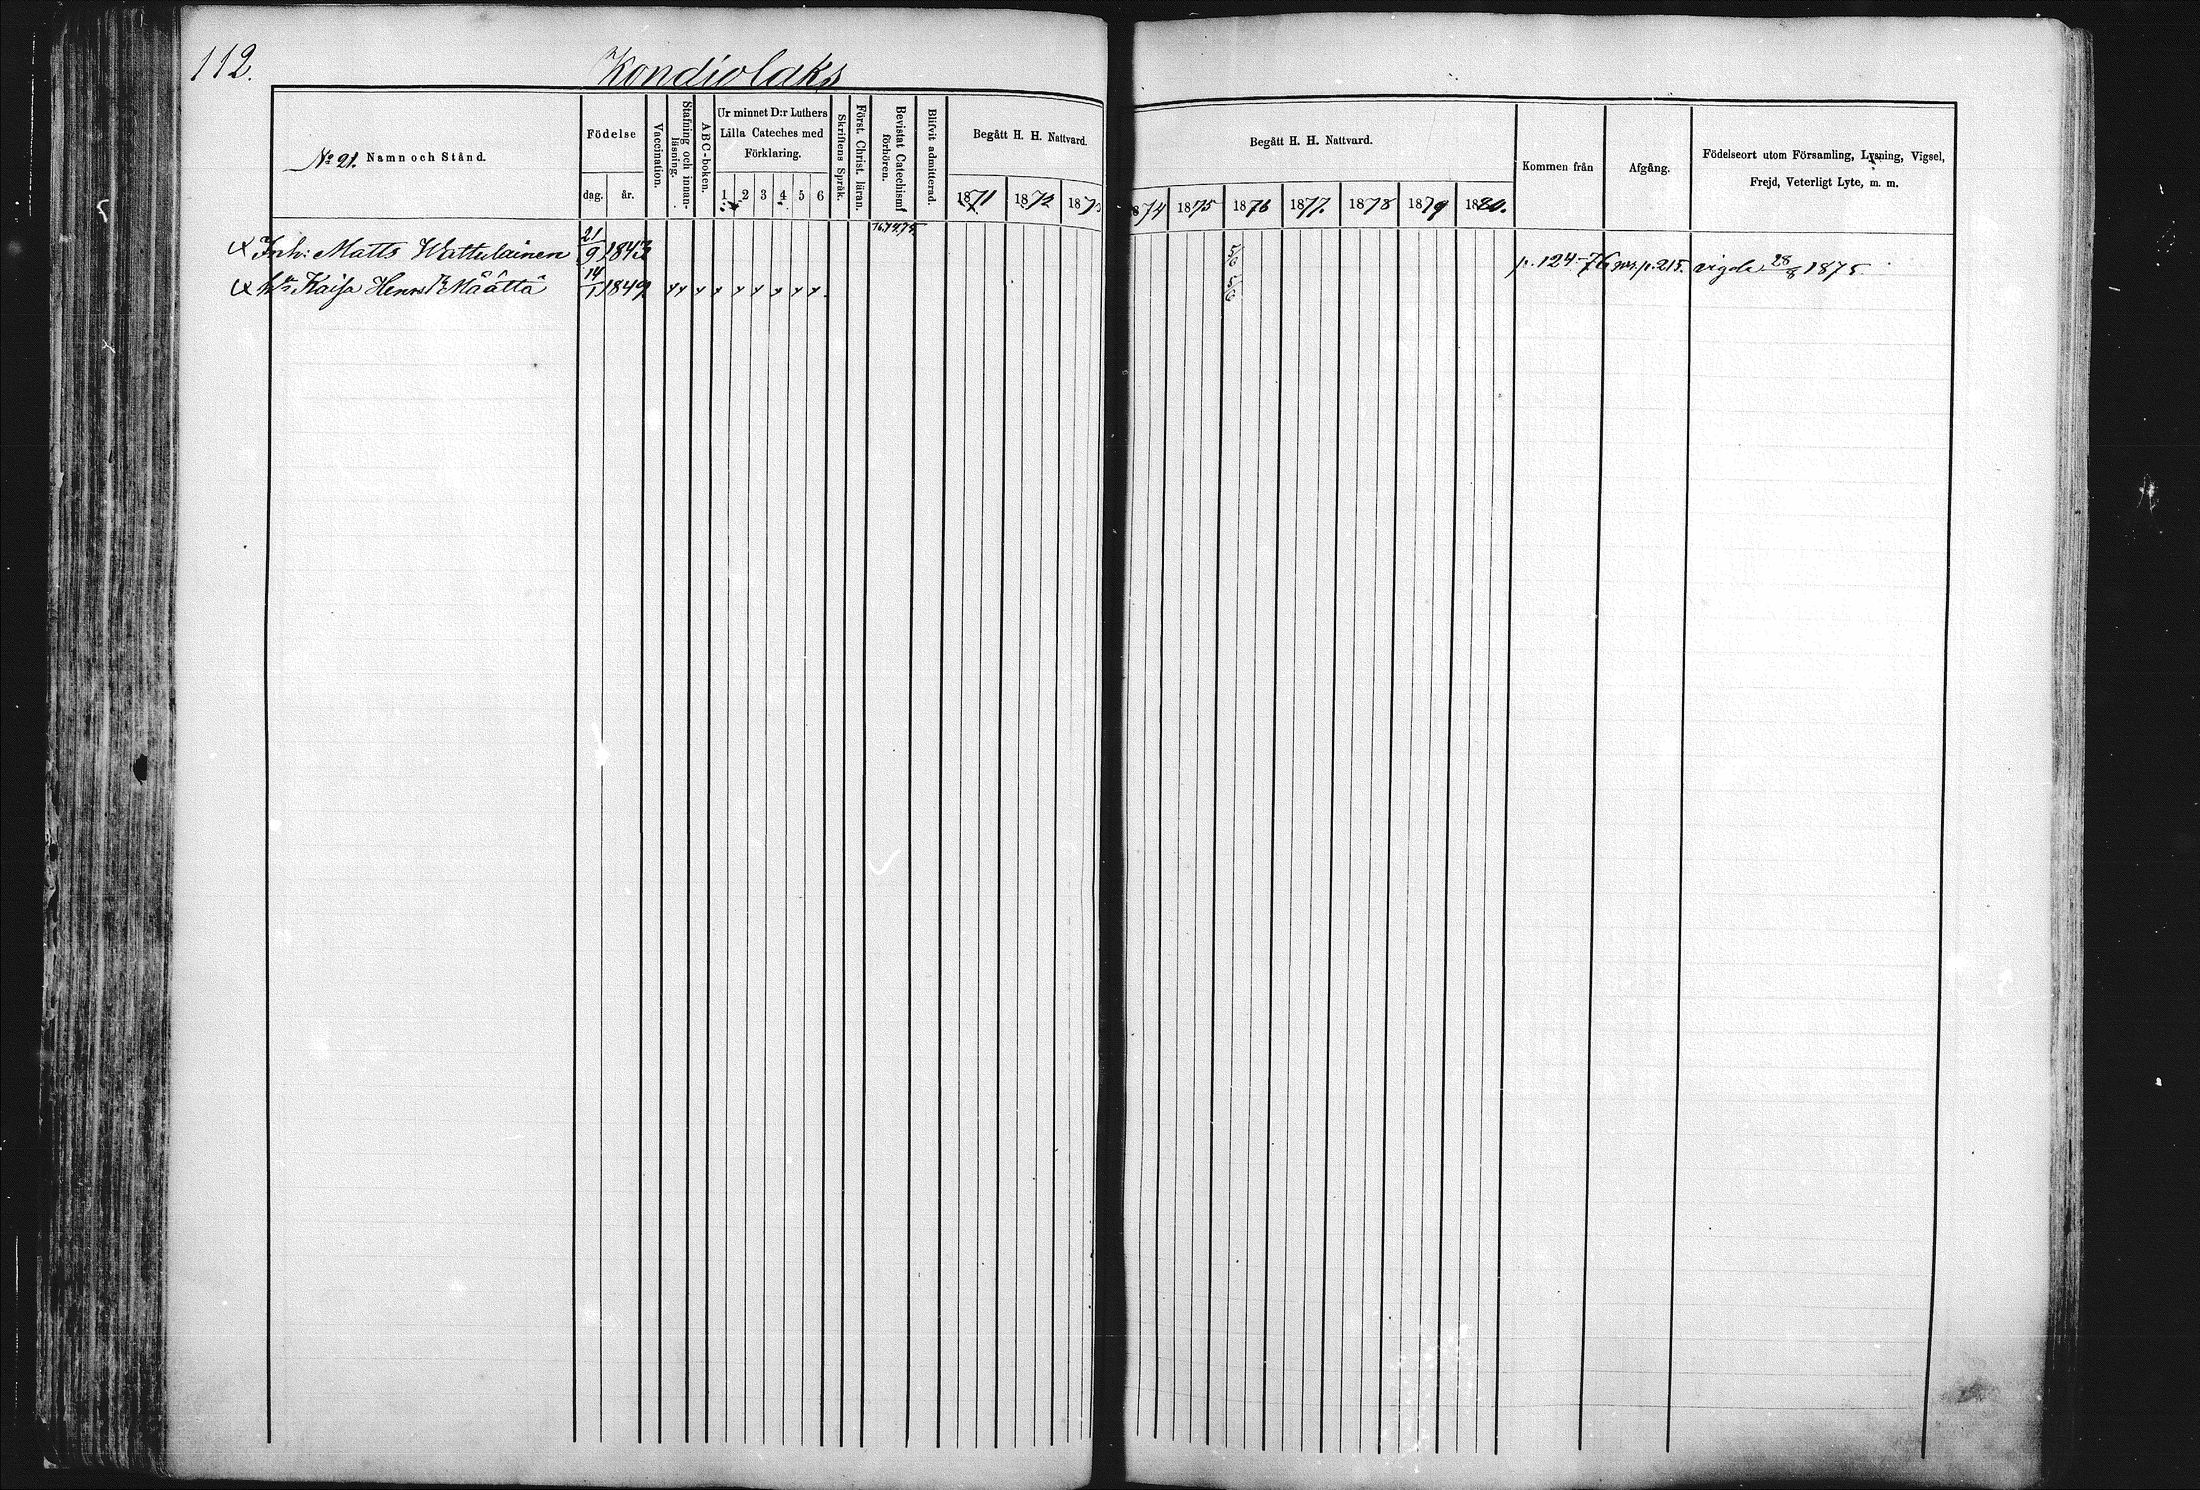 112.
Kondiolaks
№ 21. Namn och Stånd.
Födelse
dag. år.
Vaccination.
Stafning och innan-
läsning.
ABC-boken.
Ur minnet D:r Luthers
Lilla Cateches med
Förklaring.
1 2 3 4 5 6
Skriftens Språk.
Först. Christ. läran.
Bevistat Catechismi
förhören.
Blifvit admitterad.
Begått H. H. Nattvard.
1871 1872 1873
Begått H. H. Nattvard.
1874 1875 1876 1877. 1878 1879 1880.
Kommen från
Afgång.
Födelseort utom Församling, Lysning, Vigsel,
Frejd, Veterligt Lyte, m. m.
Inh: Matts Wattulainen 21/9 1843 5/6 p. 124-76 p. 215. vigda 28/8 1875.
h:u Kaisa Henrs Dr Määttä 14/1 1849 5/6